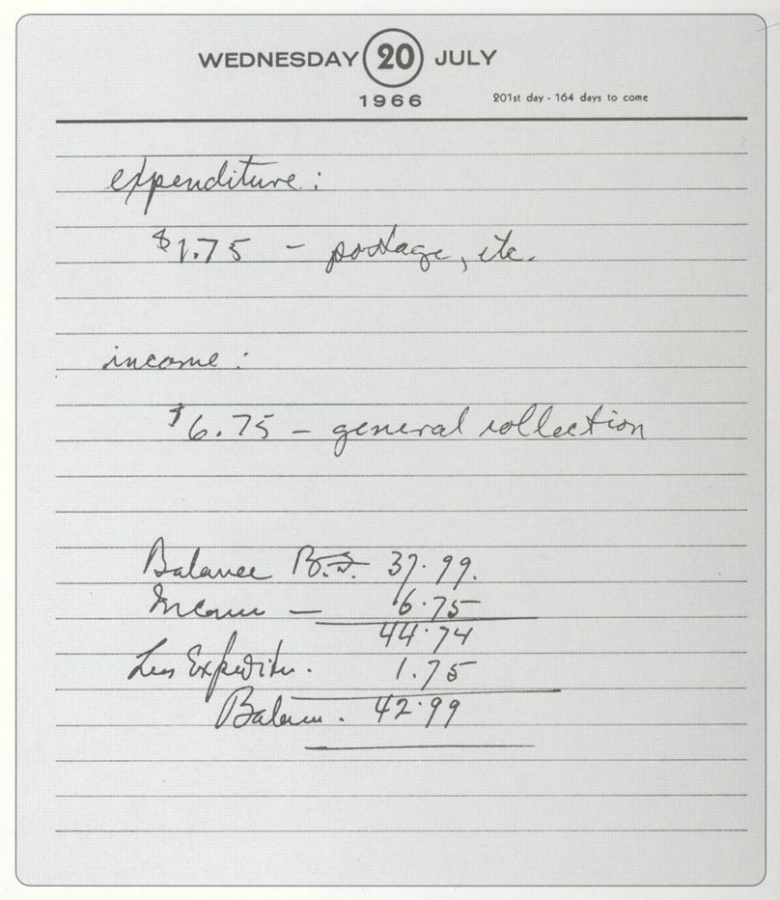 WEDNESDAY 20 JULY
1966 201st day - 164 days to come
expenditure:
$1.75 - postage, etc.
income:
$6.75 - general collection
Balance 37.99.
Income — 6.75
44.74
Less Expenditu. 1.75
Balance. 42.99